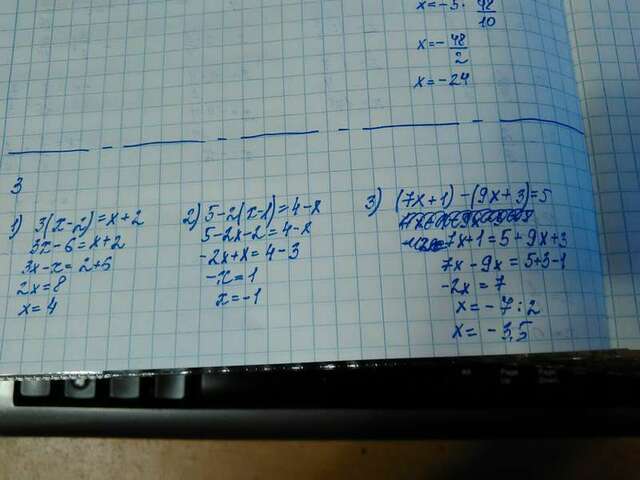 x=-5·48/10
x=-48/2
x=-24
3
1) 3(x-2)=x+2
3x-6=x+2
3x-x=2+6
2x=8
x=4
2) 5-2(x-1)=4-x
5-2x-2=4-x
-2x+x=4-3
-x=1
x=-1
3) (7x+1)-(9x+3)=5
7x+1=5+9x+3
7x-9x=5+3-1
-2x=7
x=-7:2
x=-3,5
Page Up
Page Down